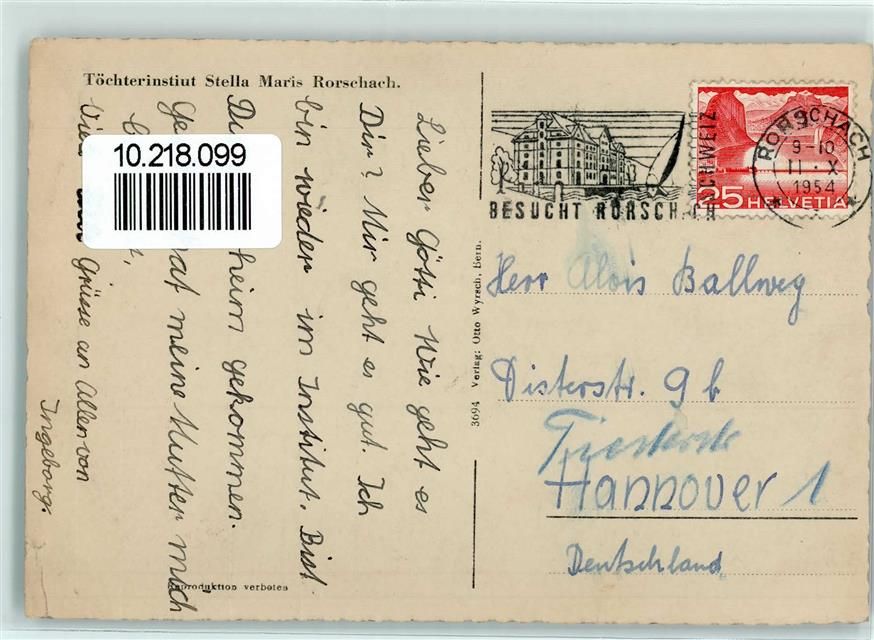 Töchterinstiut Stella Maris Rorschach.
Lieber Götti Wie geht es
Dir? Mir geht es gut. Ich
bin wieder im Institut. Bist
Du heim gekommen.
hat meine Mutter mich
Grüsse an Allen von
Ingeborg.
10.218.099
Reproduktion verboten
3694 Verlag: Otto Wyrsch, Bern.
BESUCHT RORSCHACH
SCHWEIZ
RORSCHACH
9-10
11. X
1954
25 HELVETIA
Herr Alois Ballweg
Disterstr. 9 b
Hannover 1
Deutschland